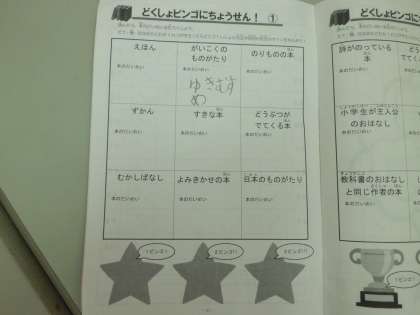 どくしょビンゴにちょうせん！ ①
えほん
本のだいめい
がいこくの
ものがたり
ゆきむす
め
のりものの本
本のだいめい
ずかん
本のだいめい
すきな本
本のだいめい
どうぶつが
でてくる本
本のだいめい
むかしばなし
本のだいめい
よみきかせの本
本のだいめい
日本のものがたり
本のだいめい
1ビンゴ！
2ビンゴ！
3ビンゴ！
詩がのっている
本
本のだいめい
小学生が主人公
のおはなし
本のだいめい
教科書のおはなし
と同じ作者の本
本のだいめい